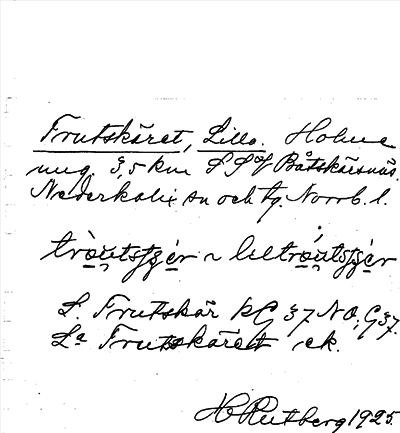 Frutskäret, Lilla. Holme
ung. 3,5 km S S of Båtskärsnäs.
Nederkalix sn och tg. Norrb. l.
L. Frutskär kG 37 NO, G37.
La Frutskäret ek.
H Rutberg 1925.